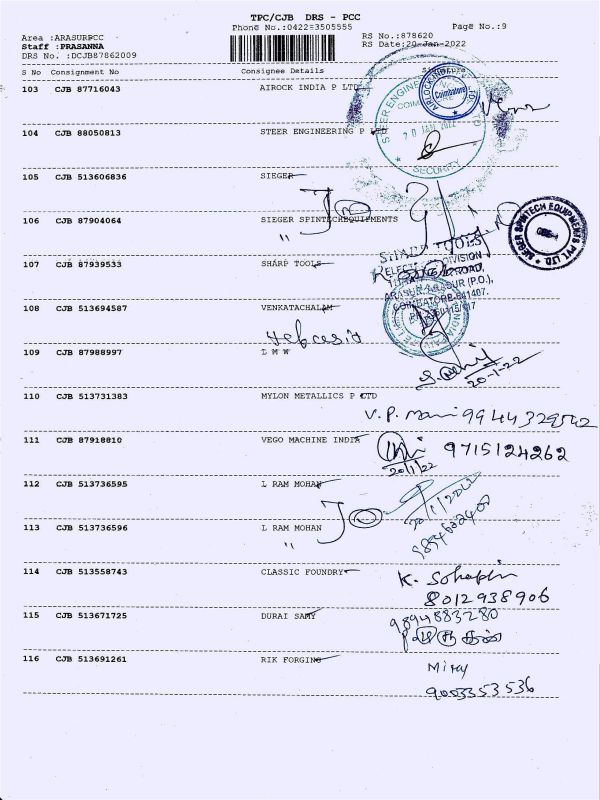 TPC/CJB DRS - PCC
Phone No.:0422=3505555
Page No.:9
Area :ARASURPCC
RS No.:878620
Staff :PRASANNA
RS Date:20-Jan-2022
DRS No. :DCJB87862009
S No Consignment No Consignee Details Signature
103 CJB 87716043 AIROCK INDIA P LTD
104 CJB 88050813 STEER ENGINEERING P LTD
105 CJB 513606836 SIEGER
106 CJB 87904064 SIEGER SPINTECHEQUIPMENTS
107 CJB 87939533 SHARP TOOLS
SHARP TOOLS
108 CJB 513694587 VENKATACHALAM
109 CJB 87988997 L M W
20-1-22
110 CJB 513731383 MYLON METALLICS P LTD
V.P. Mani 9944329542
111 CJB 87918810 VEGO MACHINE INDIA
9715124262
20/1/22
112 CJB 513736595 L RAM MOHAN
20/1/2022
113 CJB 513736596 L RAM MOHAN
114 CJB 513558743 CLASSIC FOUNDRY
8012938906
115 CJB 513671725 DURAI SAMY
9894883280
116 CJB 513691261 RIK FORGING
9003353536